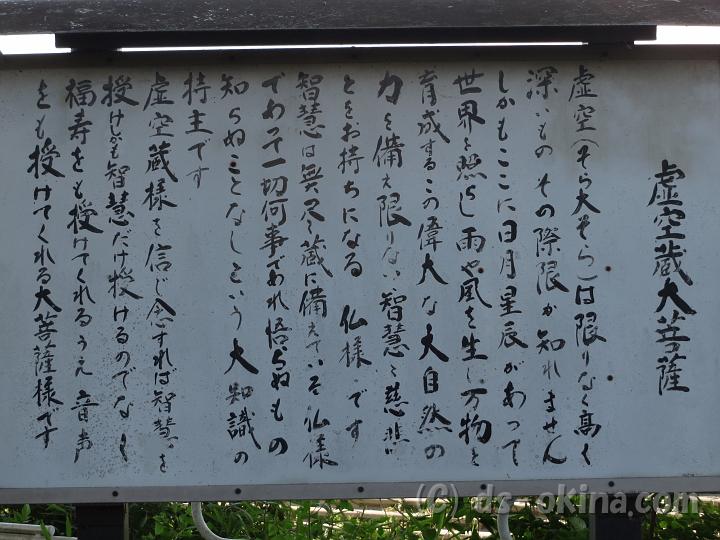 虚空蔵大菩薩
虚空(そら大そら)は限りなく高く
深いもの その際限が知れません
しかもここに日月星辰があって
世界を照らし雨や風を生し万物を
育成するこの偉大な大自然の
力を備え限りない智慧と慈悲
とをお持ちになる 仏様です
智慧は無尽蔵に備えている仏様
であって一切何事であれ悟らぬもの
知らぬことなしという大知識の
持主です
虚空蔵様を信じ念ずれば智慧を
授けしかも智慧だけ授けるのでなく
福寿をも授けてくれるうえ音声
をも授けてくれる大菩薩様です
(C) ds-okina.com